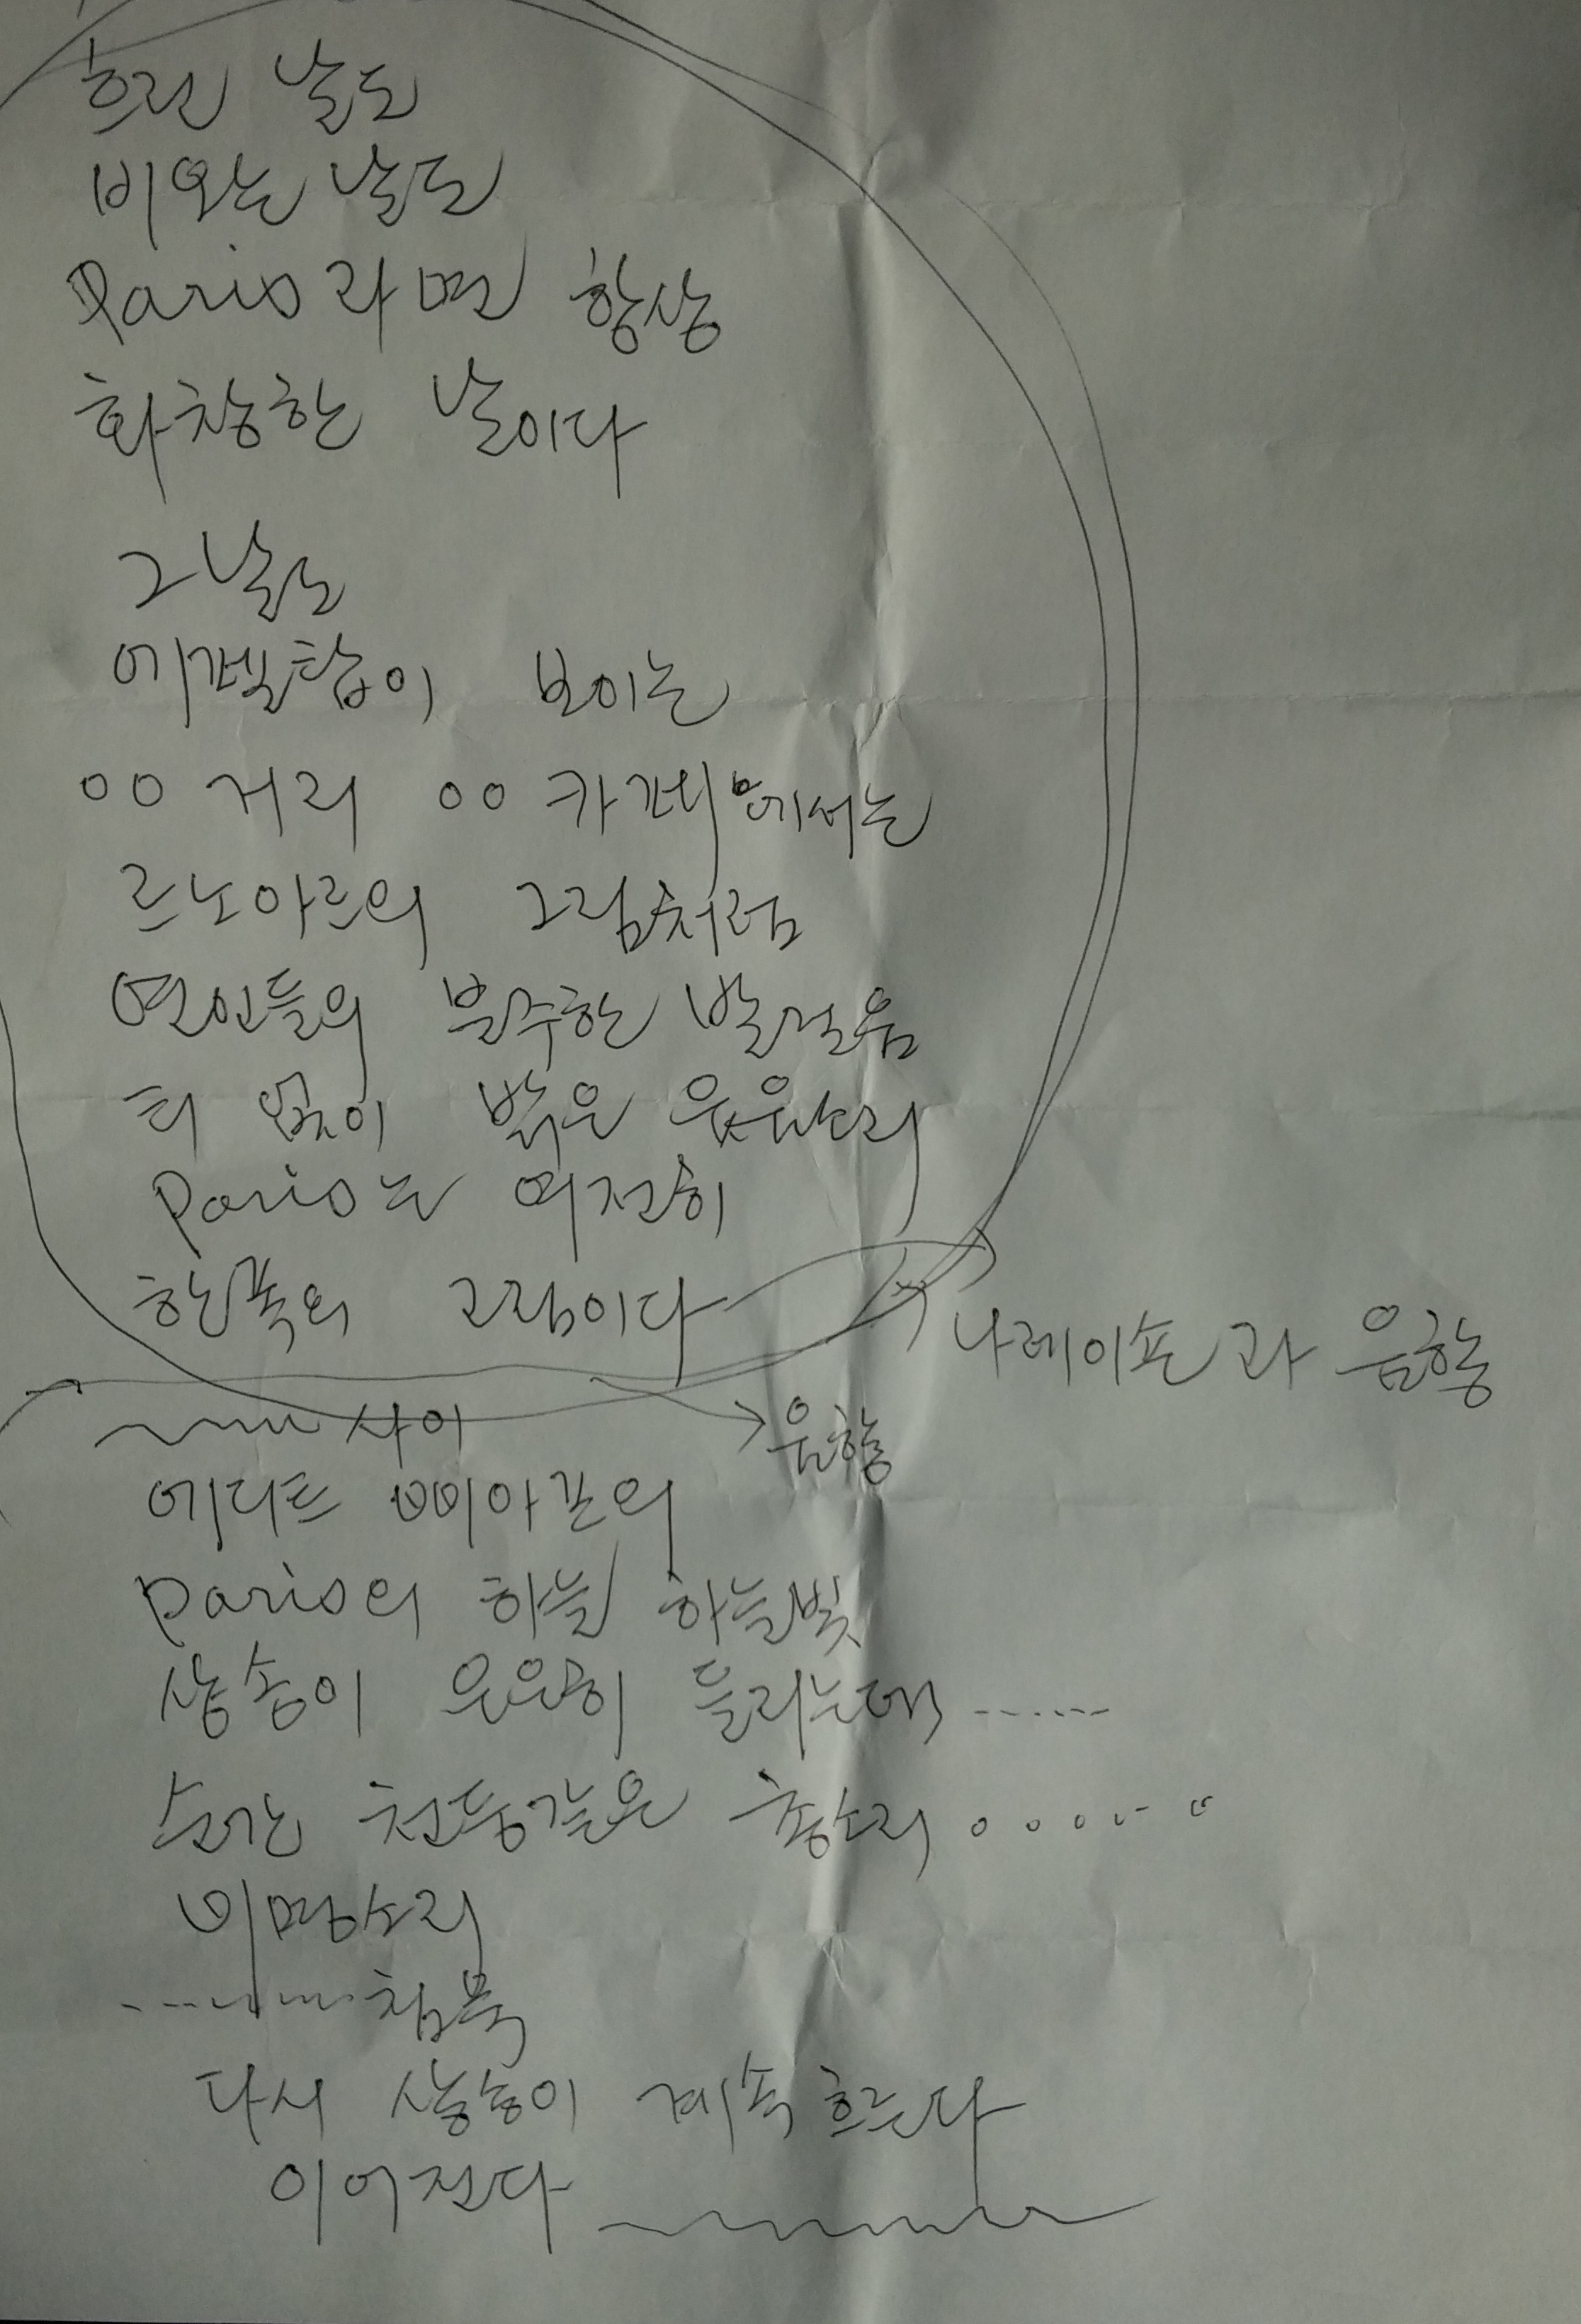 흐린 날도
비오는 날도
Paris라면 항상
화창한 날이다
그날도
에펠탑이 보이는
○○ 거리 ○○ 카페에서는
르노아르의 그림처럼
연인들의 분주한 발걸음
티 없이 밝은 웃음소리
Paris는 여전히
한폭의 그림이다
나레이숀과 음향
~~~~ 사이
음향
에디트 삐아프의
Paris의 하늘 하늘빛
샹송이 은은히 들리는데 ......
순간 천둥같은 총소리 ......
비명소리
........ 침묵
다시 샹송이 계속 흐른다
이어진다 ~~~~